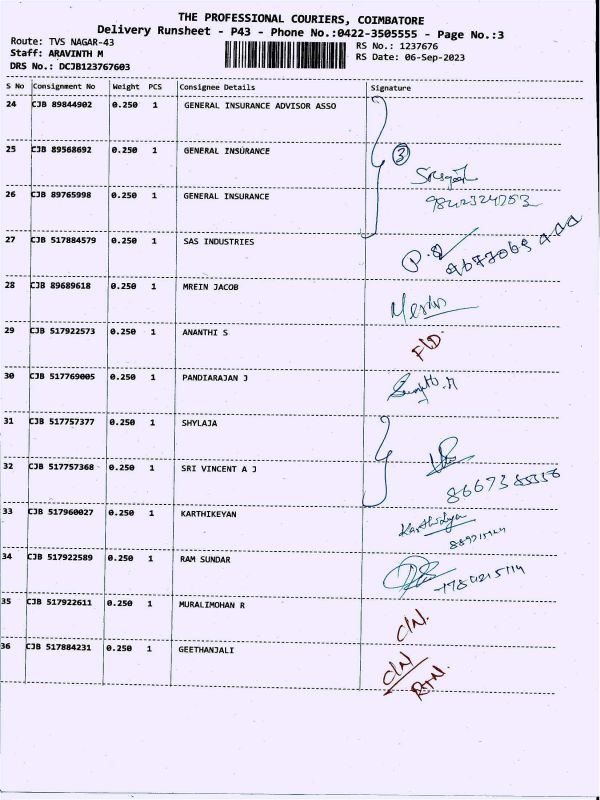 THE PROFESSIONAL COURIERS, COIMBATORE
Delivery Runsheet - P43 - Phone No.:0422-3505555 - Page No.:3
Route: TVS NAGAR-43
RS No.: 1237676
Staff: ARAVINTH M
RS Date: 06-Sep-2023
DRS No.: DCJB123767603
S No Consignment No Weight PCS Consignee Details Signature
24 CJB 89844902 0.250 1 GENERAL INSURANCE ADVISOR ASSO
25 CJB 89568692 0.250 1 GENERAL INSURANCE
3
26 CJB 89765998 0.250 1 GENERAL INSURANCE
9842324753
27 CJB 517884579 0.250 1 SAS INDUSTRIES
28 CJB 89689618 0.250 1 MREIN JACOB
29 CJB 517922573 0.250 1 ANANTHI S
F/D
30 CJB 517769005 0.250 1 PANDIARAJAN J
31 CJB 517757377 0.250 1 SHYLAJA
32 CJB 517757368 0.250 1 SRI VINCENT A J
33 CJB 517960027 0.250 1 KARTHIKEYAN
34 CJB 517922589 0.250 1 RAM SUNDAR
35 CJB 517922611 0.250 1 MURALIMOHAN R
C/N.
36 CJB 517884231 0.250 1 GEETHANJALI
C/N
RTN.